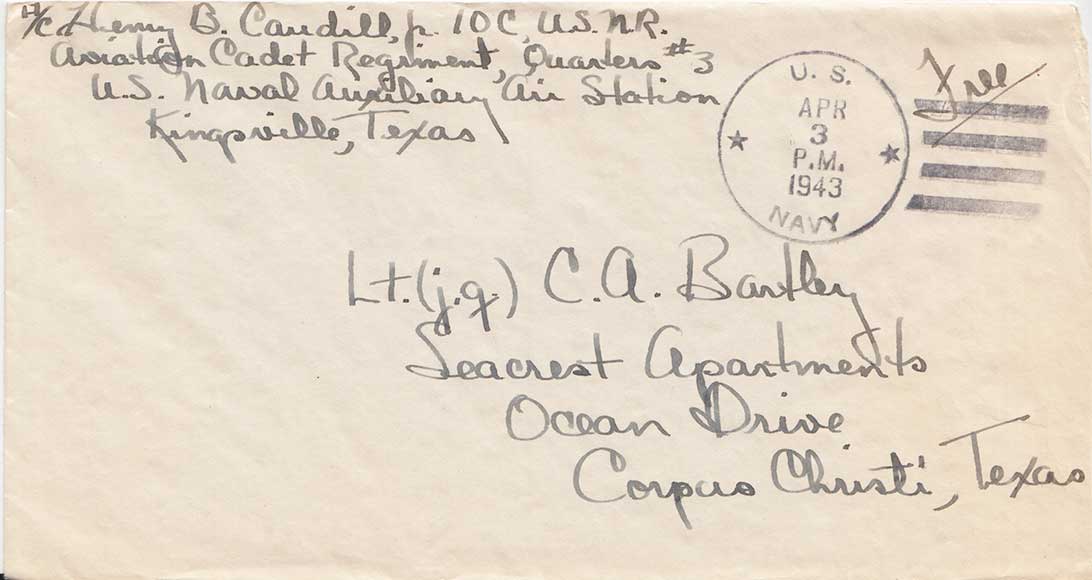 A/c Henry B. Caudill, Jr. 10C, U.S.N.R.
Aviation Cadet Regiment, Quarters #3
U.S. Naval Auxiliary Air Station
Kingsville, Texas
U. S.
APR
3
P.M.
1943
NAVY
Free
Lt.(j.g.) C.A. Bartley
Seacrest Apartments
Ocean Drive
Corpus Christi, Texas